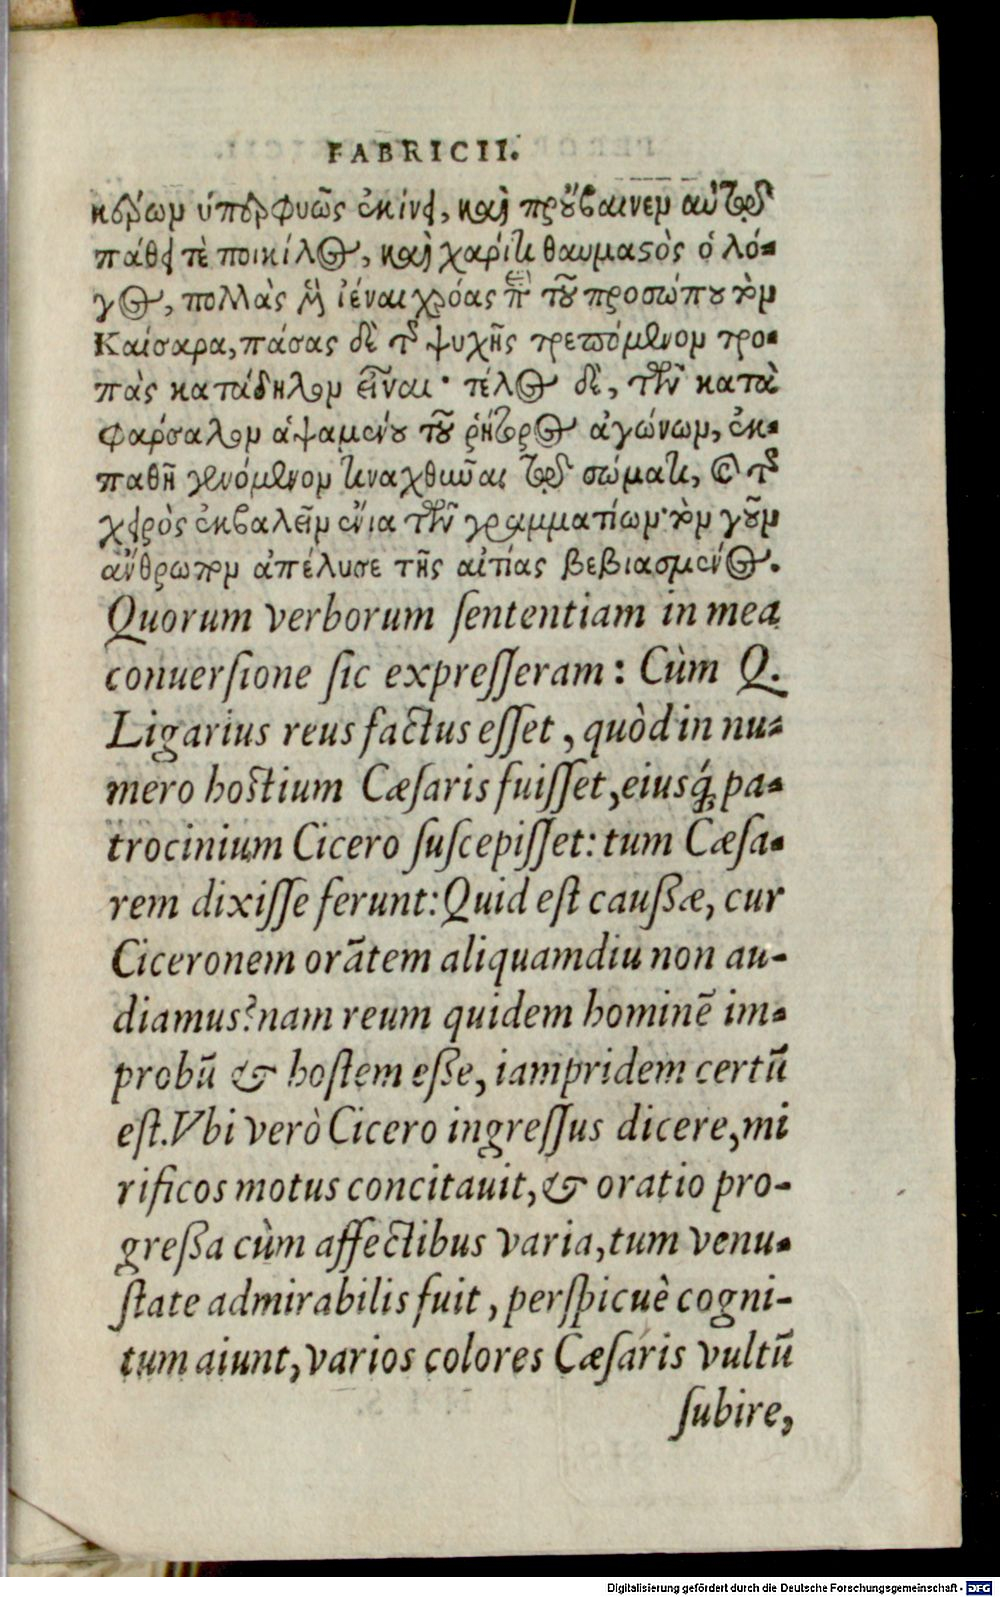 FABRICII.
κέρων ὑπερφυῶς ἐκίνει, καὶ προὔβαινεν αὐτῷ
πάθει τὲ ποικίλος, καὶ χάριτι θαυμαστὸς ὁ λό-
γος, πολλὰς μὲν ἰέναι χρόας ἐπὶ τοῦ προσώπου τὸν
Καίσαρα, πάσας δὲ τῆς ψυχῆς τρεπόμενον τρο-
πὰς κατάδηλον εἶναι· τέλος δὲ, τῶν κατὰ
Φαρσαλον ἁψαμένου τοῦ ῥήτορος ἀγώνων, ἐκ-
παθῆ γενόμενον τιναχθῆναι τῷ σώματι, καὶ τῆς
χειρὸς ἐκβαλεῖν ἔνια τῶν γραμματίων· τὸν γοῦν
ἄνθρωπον ἀπέλυσε τῆς αἰτίας βεβιασμένος.
Quorum verborum ſententiam in mea
conuerſione ſic expreſſeram: Cùm Q.
Ligarius reus factus eſſet, quòd in nu-
mero hoſtium Cæſaris fuiſſet, eiusq́; pa-
trocinium Cicero ſuſcepiſſet: tum Cæſa-
rem dixiſſe ferunt: Quid eſt cauſsæ, cur
Ciceronem orātem aliquamdiu non au-
diamus? nam reum quidem hominē im-
probū & hoſtem eſse, iampridem certū
eſt. Vbi verò Cicero ingreſſus dicere, mi
rificos motus concitauit, & oratio pro-
greſsa cùm affectibus varia, tum venu-
ſtate admirabilis fuit, perſpicuè cogni-
tum aiunt, varios colores Cæſaris vultū
ſubire,
Digitalisierung gefördert durch die Deutsche Forschungsgemeinschaft - DFG